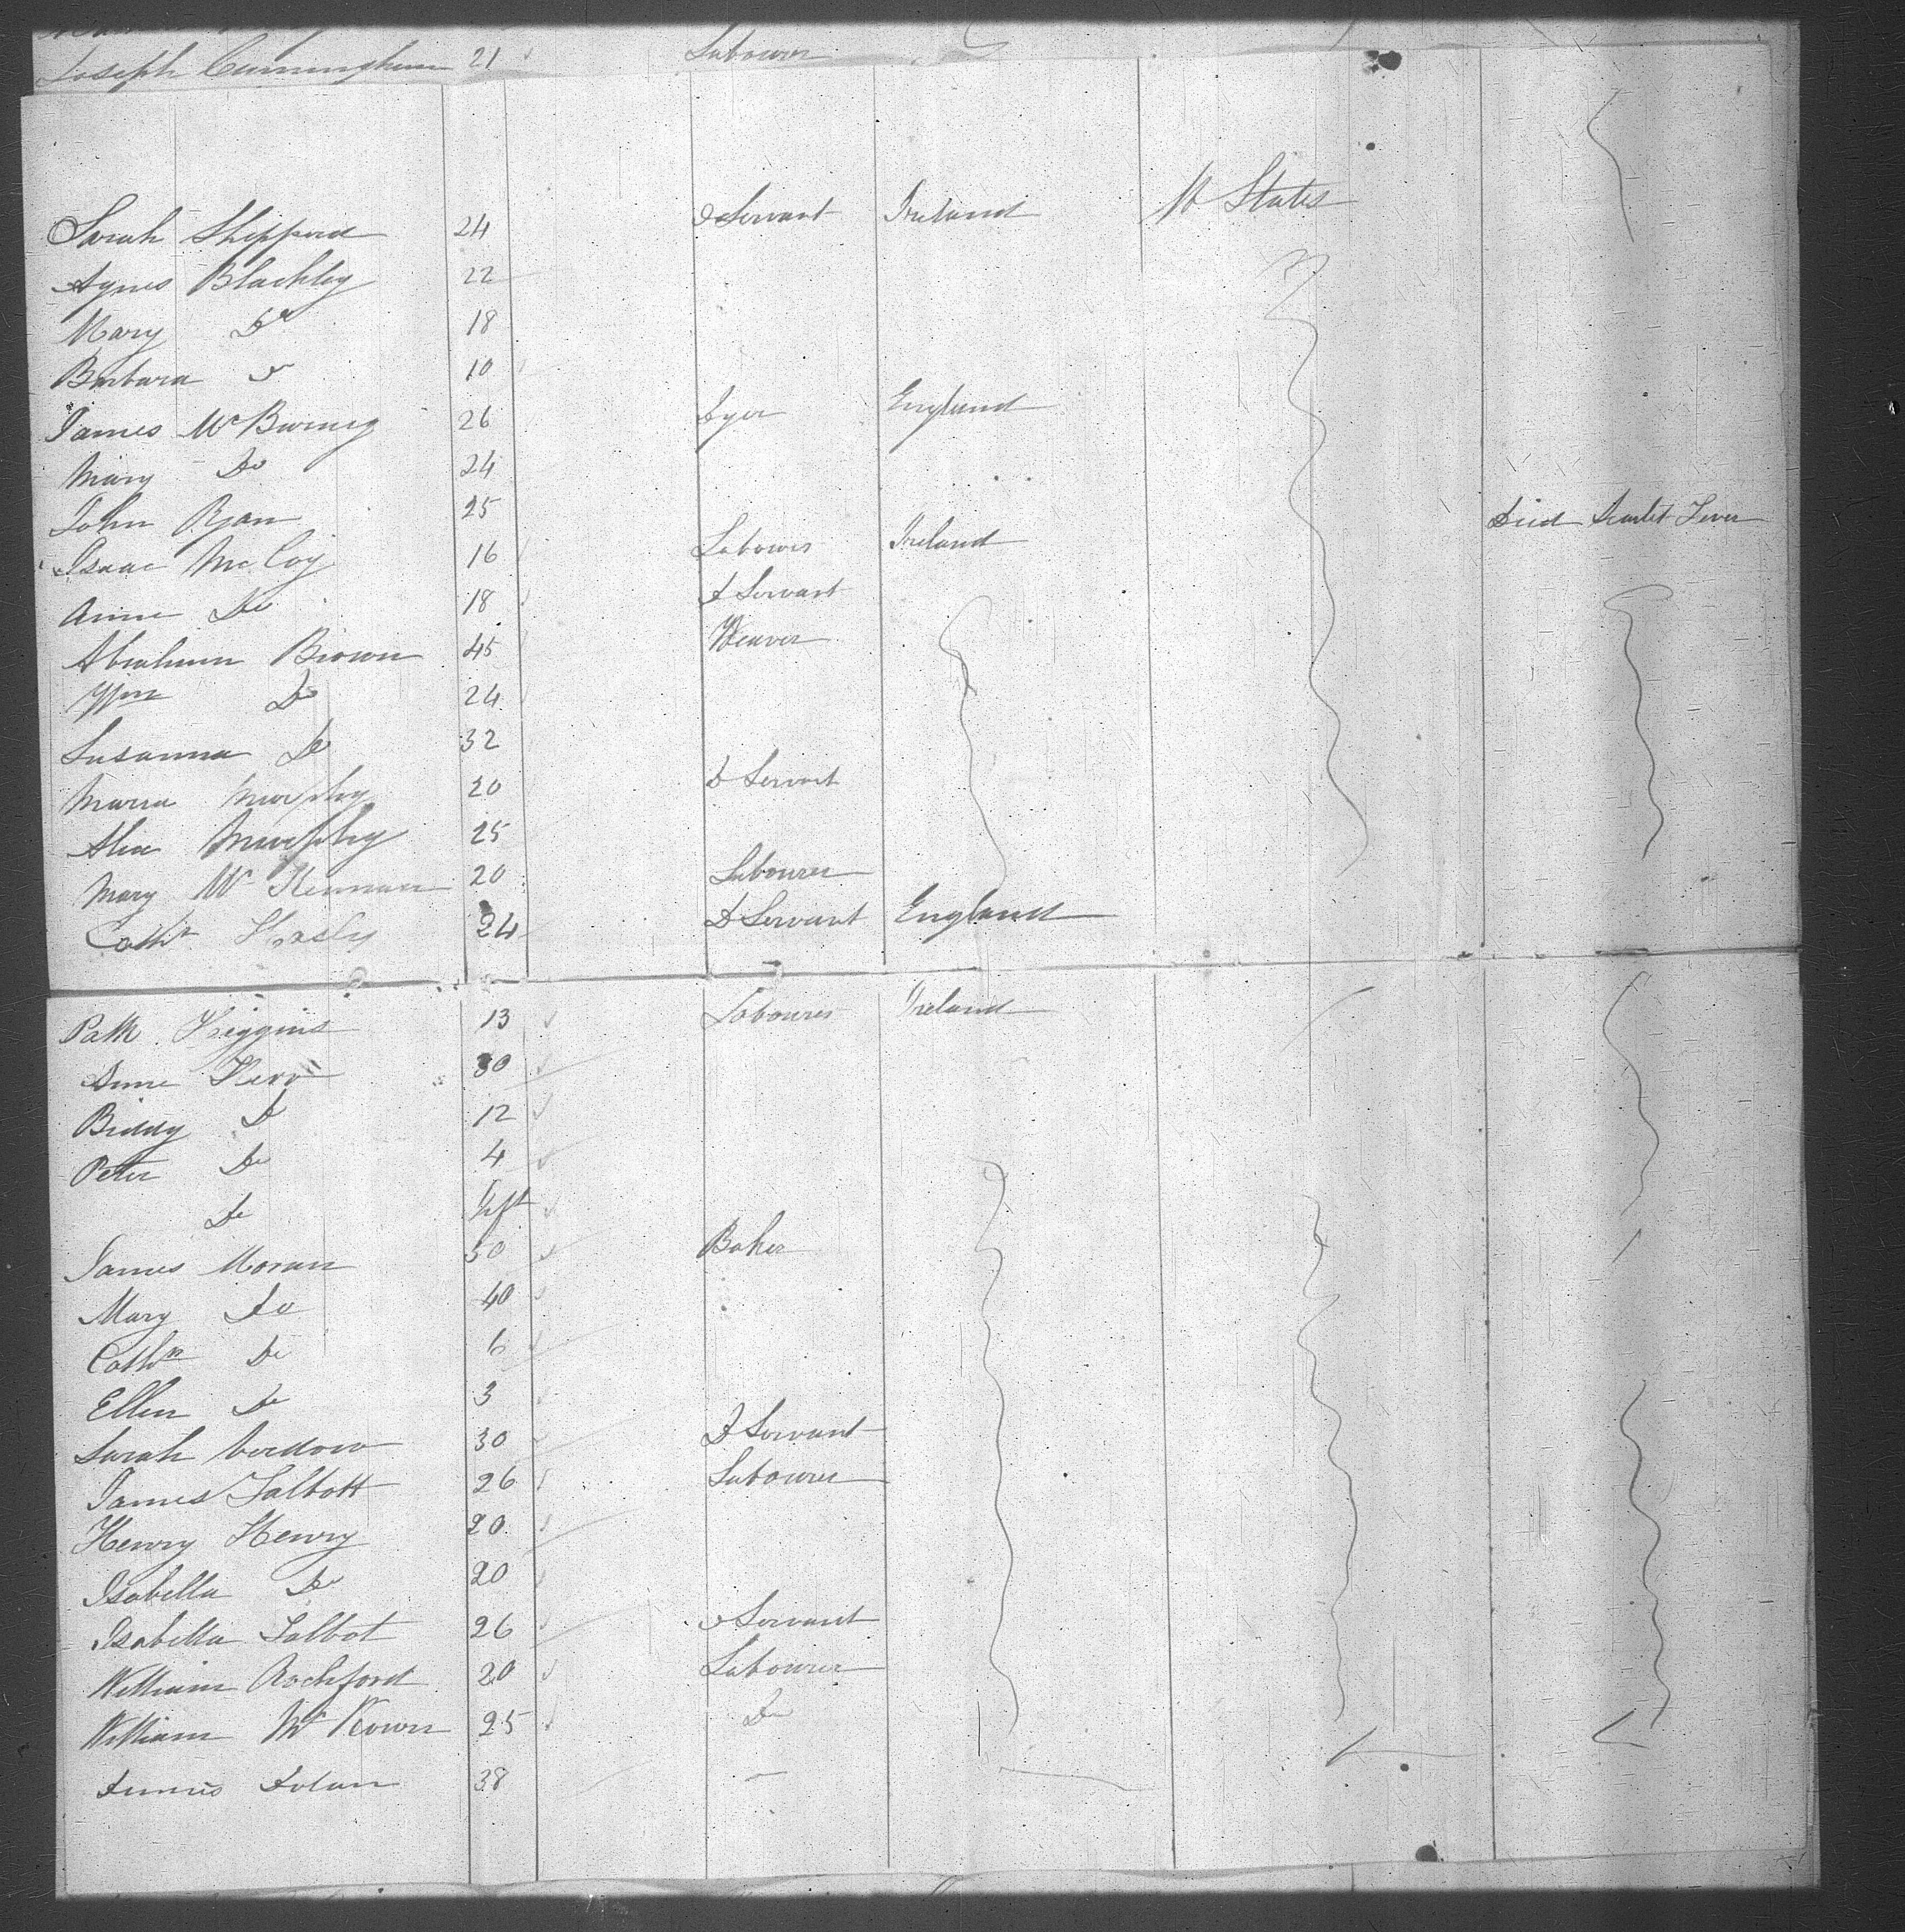 Joseph Cunningham 21 Labourer
Sarah Shepperd 24 D Servant Ireland U States
Agnes Blackley 22
Mary Do 18
Barbara Do 10
James McBurney 26 Dyer England
Mary Do 24
John Ryan 25 Died Scarlet Fever
Isaac McCoy 16 Labourer Ireland
Anne Do 18 D Servant
Abraham Brown 45 Weaver
Do 24
Susanna Do 32
Maria Murphy 20 D Servant
Murphy 25
Mary Mc 20 Labourer
Cathn 24 D Servant England
Patk Higgins 13 Labourer Ireland
Anne Kerr 30
Biddy Do 12
Peter Do 4
Do Inft
James Moran 50 Baker
Mary Do 40
Cathn Do 6
Ellen Do 3
Sarah 30 D Servant
James Talbott 26 Labourer
Henry Henry 20
Isabella Do 20
Isabella Talbot 26 D Servant
William Rochford 20 Labourer
William McKown 25 Do
Dolan 38